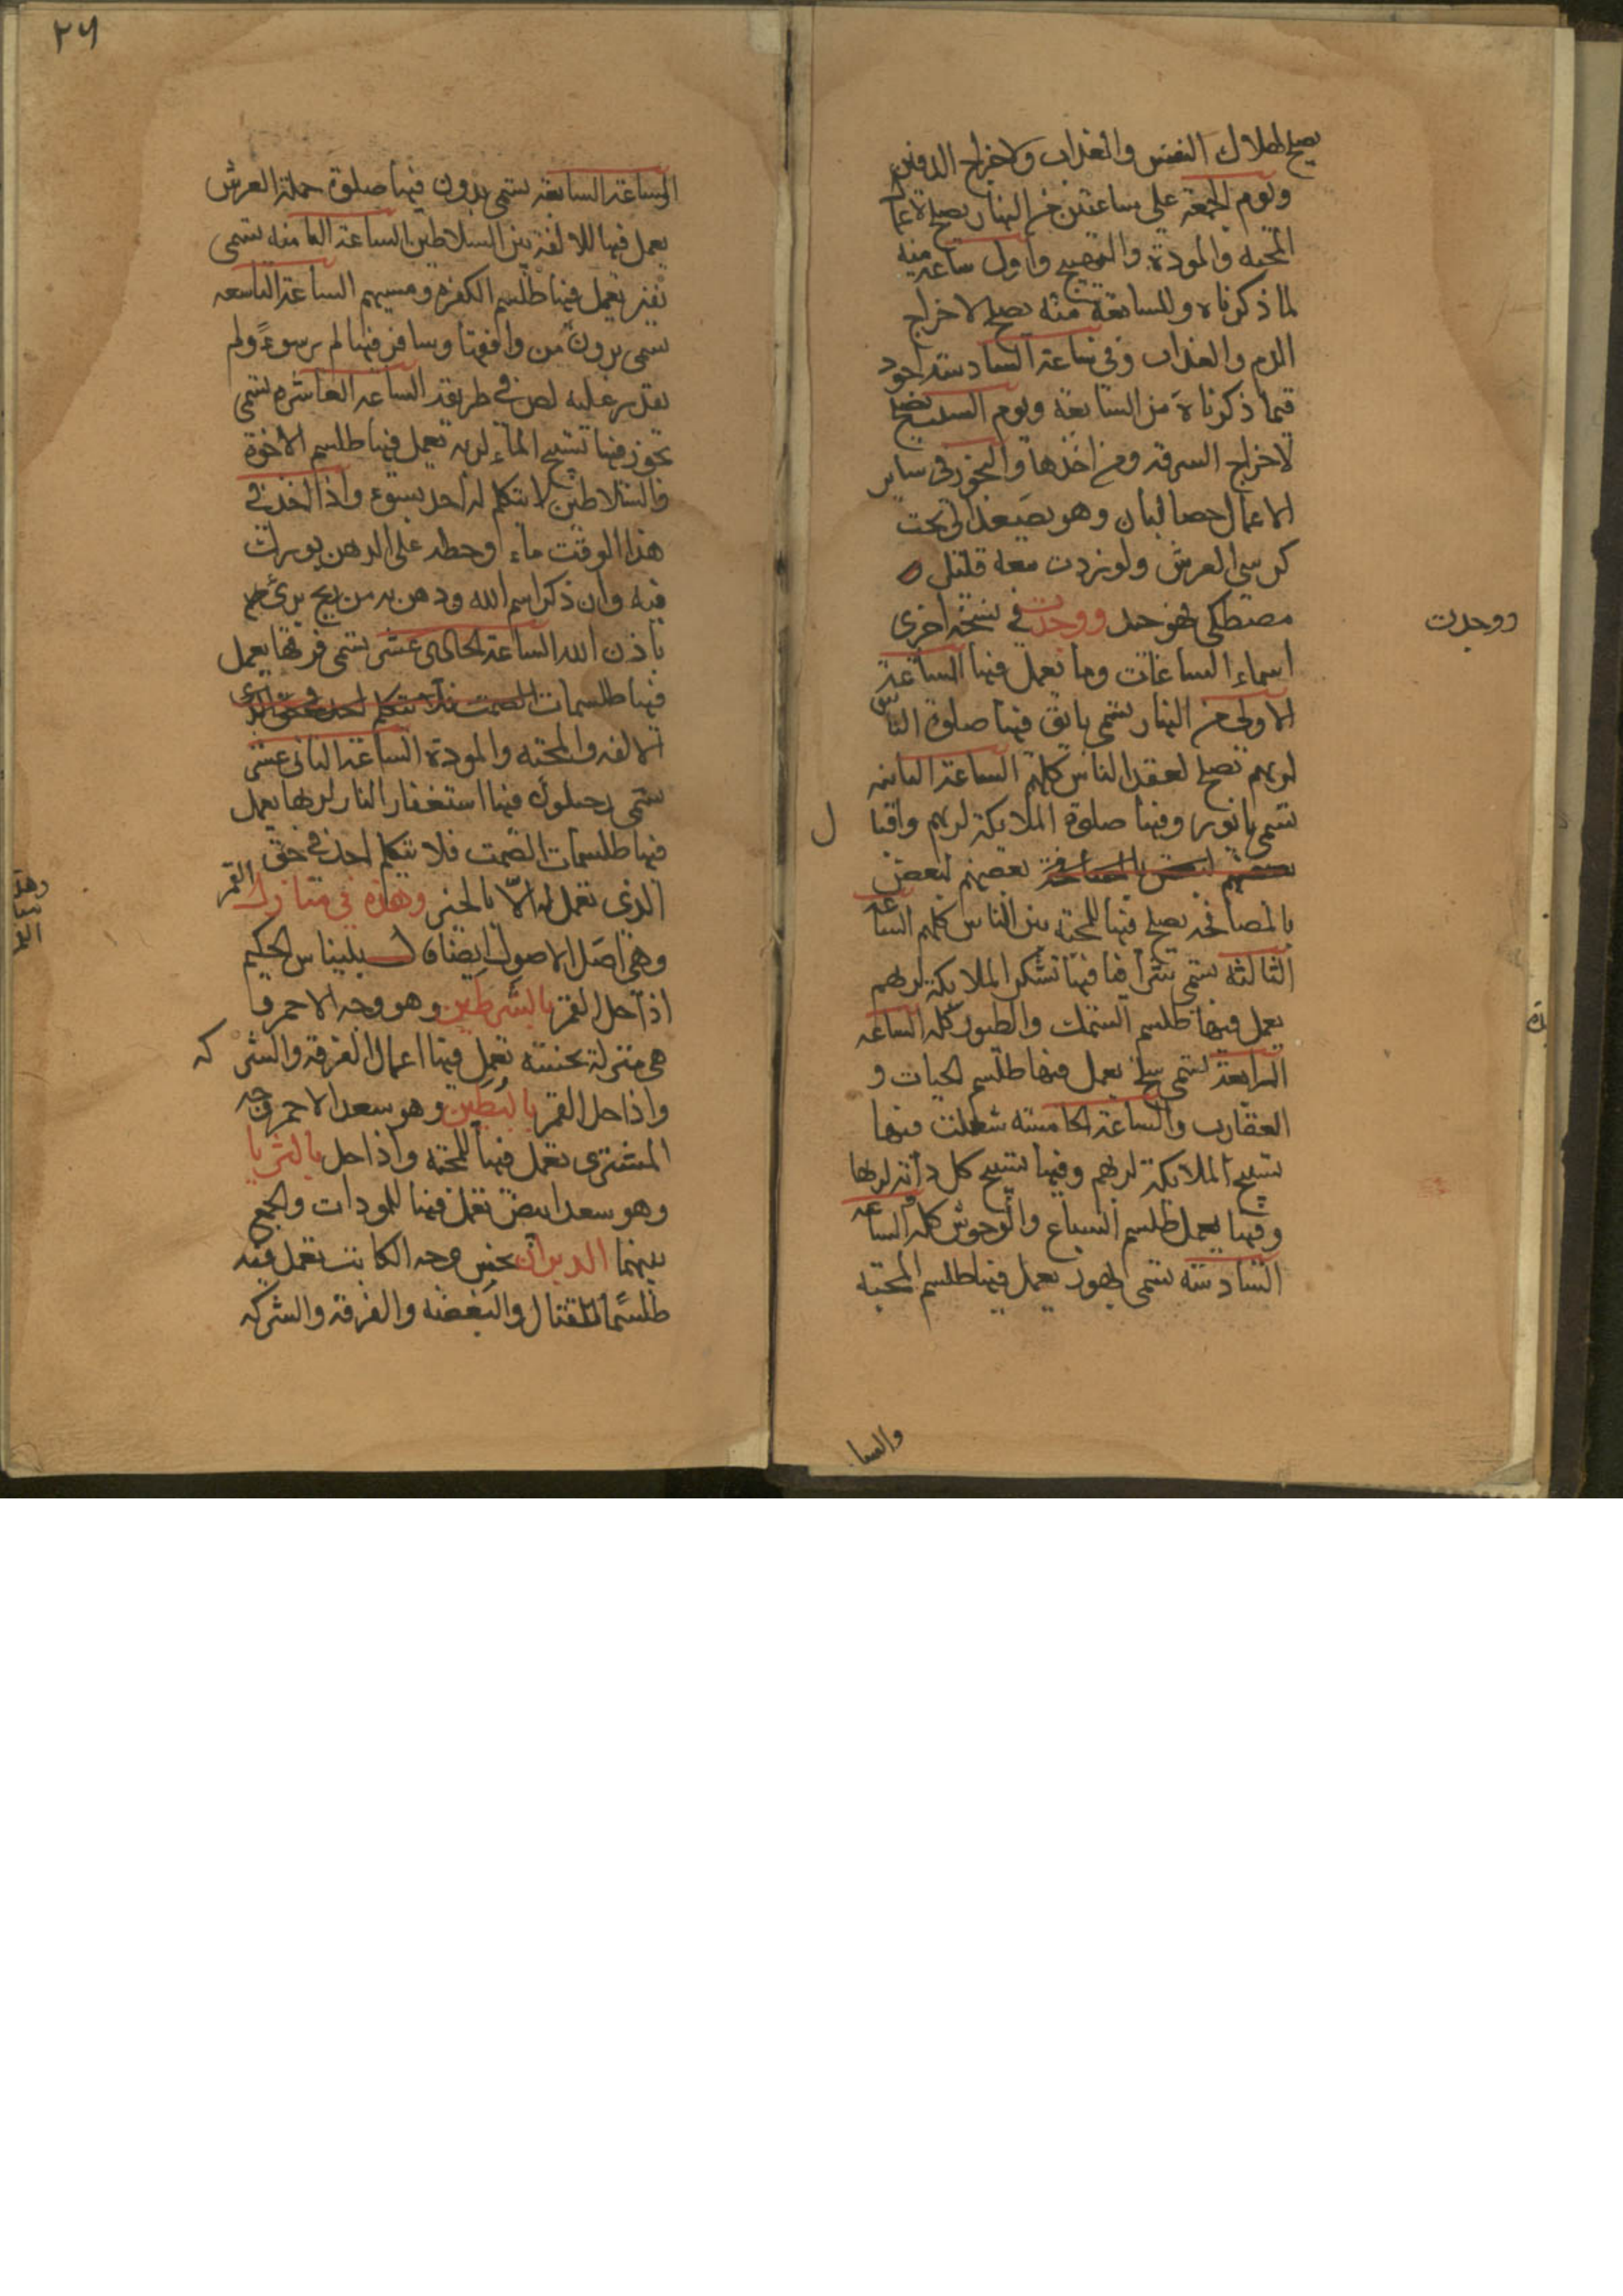 يصلح لهلاك النفس والعذاب ولاخراج الدفين
ويوم الجمعة على ساعتين من النهار يصلح لاعمال
المحبه والمودة والتهييج واول ساعه منه
لما ذكرناه والسابعة منه يصلح لاخراج
الدم والعذاب وفي ساعة السادسة اجود
فيما ذكرناه من السابعة ويوم السبت يصلح
لاخراج السرقه ومن اخذها والبخور في ساير
الاعمال حصا لبان وهو يصعد الى تحت
كرسي العرش ولو زدت معه قليل
مصطكى فهو جيد ووجدت في نسخه اخرى
ووجدت
اسماء الساعات وما يعمل فيها الساعة
الاولى من النهار تسمى يانق فيها صلوة الناس
لربهم تصلح لعقد الناس كلهم الساعة الثانيه
تسمى يانور وفيها صلوة الملايكة لربهم واقبا
ل
بعضهم لبعض بالمصافحة بعضهم لبعض
بالمصافحه يصلح فيها للمحبة بين الناس كلهم الساعه
الثالثه تسمى فيها تشكر الملايكة لربهم
يعمل فيها طلسم السمك والطيور كله الساعه
الرابعة تسمى يعمل فيها طلسم الحيات و
العقارب والساعة الخامسه فيها
تسبيح الملايكة لربهم وفيها تسبيح كل دابة لربها
وفيها يعمل طلسم السباع والوحوش كله الساعه
السادسه تسمى يعمل فيها طلسم المحبه
والسا
٢٦
الساعة السابعه تسمى بدون فيها صلوة حملة العرش
يعمل فيها للالفة بين السلاطين الساعة الثامنه تسمى
يعمل فيها طلسم الكفره ومسيهم الساعة التاسعه
تسمى يرون من وافقها وسافر فيها لم ير سوءً ولم
يقدر عليه لص في طريقه الساعه العاشره تسمى
تحوز فيها تسبيح الماء لربه تعمل فيها طلسم الاخوة
والسلاطين لا يتكلم له احد بسوء واذا اخذ في
هذا الوقت ماء وحطه على الدهن بورك
فيه وان ذكر اسم الله ودهن به من ريح برئ
باذن الله الساعة الحادى عشر تسمى يعمل
فيها طلسمات الصمت فلا يتكلم احد في حق الذى
الالفه والمحبه والمودة الساعة الثانى عشر
تسمى رحلوك فيها استغفار النار لربها يعمل
فيها طلسمات الصمت فلا يتكلم احد في حق
الذى تعمل له الا بالخير وهذه في منازل القمر
وهذه
وهى اصل الاصول ايضا قال بليناس الحكيم
اذا حل القمر بالشرطين وهو وجه الاحمر و
هى منزلة نحسه تعمل فيها اعمال الفرقه والشر
كه
واذا حل القمر بالبطين وهو سعد الاحمر وجه
المشترى تعمل فيها للمحبه واذا حل بالثريا
وهو سعد ابيض تعمل فيها للمودات والجمع
بينهما الدبران نحس وجه الكاتب تعمل فيه
طلسمًا للقتال والبغضه والفرقه والشركه